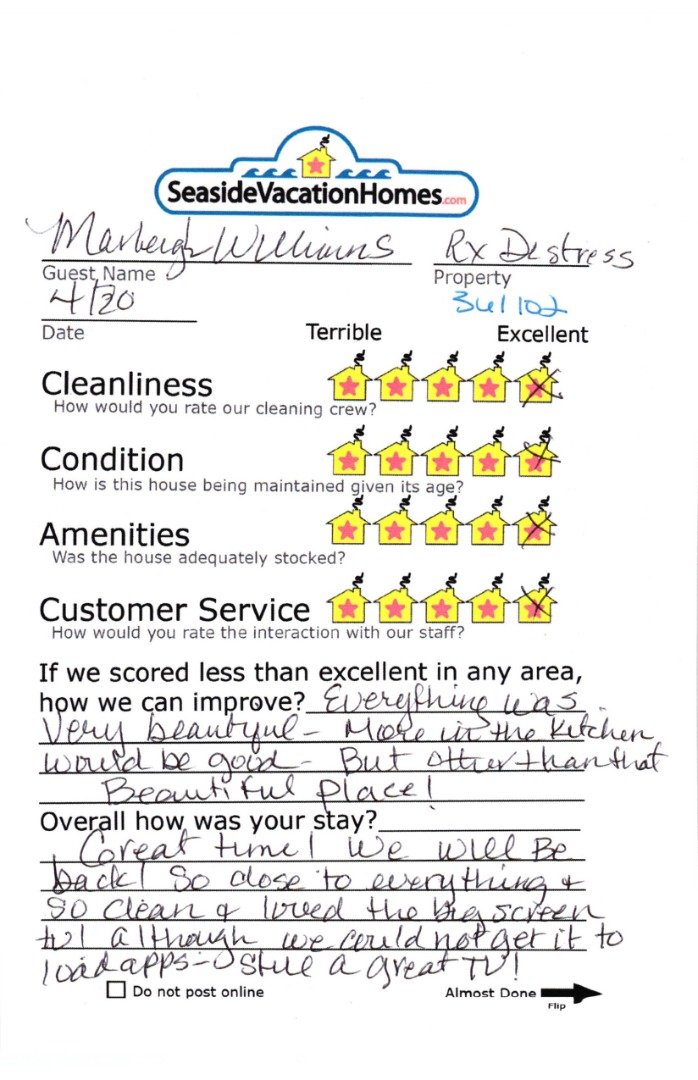 SeasideVacationHomes.com
Marleigh Williams Rx Distress
Guest Name Property
4/20 361102
Date Terrible Excellent
Cleanliness
How would you rate our cleaning crew?
Condition
How is this house being maintained given its age?
Amenities
Was the house adequately stocked?
Customer Service
How would you rate the interaction with our staff?
If we scored less than excellent in any area,
how we can improve? Everything was
Very beautiful - More in the kitchen
would be good - But other than that
Beautiful place!
Overall how was your stay?
Great time! We will Be
back! So close to everything &
so clean & loved the big screen
tv! although we could not get it to
load apps - Still a great TV!
Do not post online Almost Done
Flip